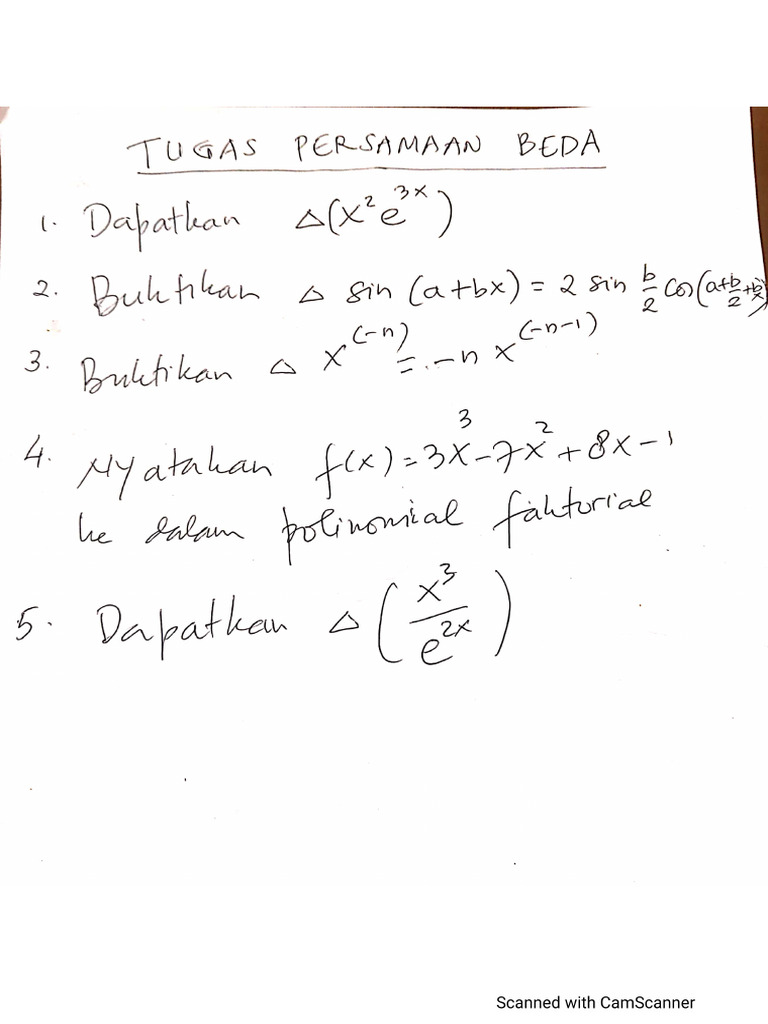 TUGAS PERSAMAAN BEDA
1. Dapatkan Δ(x²e³ˣ)
2. Buktikan Δ sin (a+bx) = 2 sin b/2 cos(a+b/2+bx)
3. Buktikan Δ x⁽⁻ⁿ⁾ = -n x⁽⁻ⁿ⁻¹⁾
4. Nyatakan f(x) = 3x³-7x²+8x-1
ke dalam polinomial faktorial
5. Dapatkan Δ(x³/e²ˣ)
Scanned with CamScanner